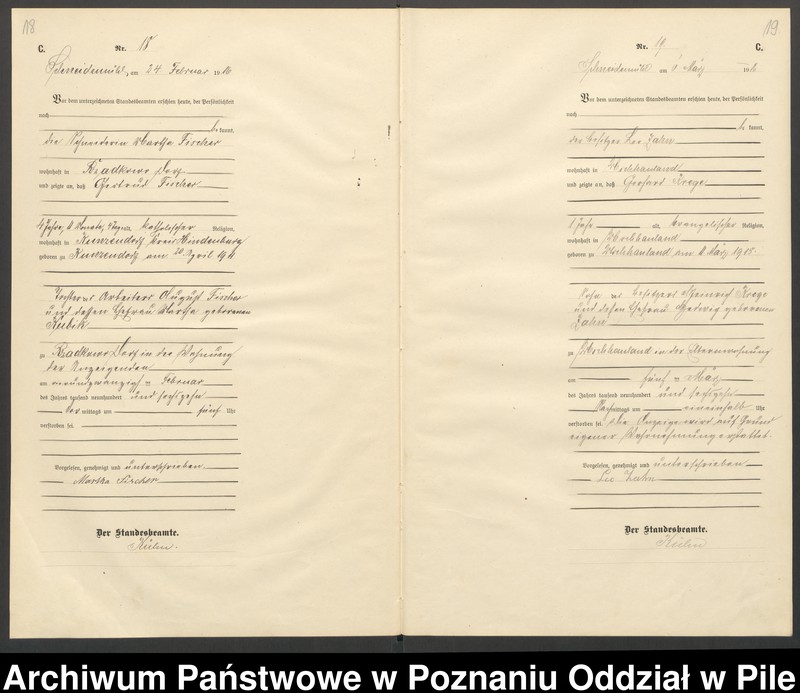 18
C. Nr. 18
Schneidemühl, am 24 Februar 1916
Vor dem unterzeichneten Standesbeamten erschien heute, der Persönlichkeit
nach
be kannt,
die Schneiderin Martha Fischer
wohnhaft in Dorf
und zeigte an, daß Gertrud Fischer
4 Jahre, alt, katholischer Religion,
wohnhaft in Kunzendorf Kreis Hindenburg
geboren zu Kunzendorf am 20 April 1911
Tochter des Arbeiters August Fischer
und dessen Ehefrau Martha geborenen
Kubik
zu Dorf in der Wohnung
der Anzeigenden
am vierundzwanzigsten Februar
des Jahres tausend neunhundert und sechzehn
vor mittags um fünf Uhr
verstorben sei.
Vorgelesen, genehmigt und unterschrieben
Martha Fischer
Der Standesbeamte.
19
Nr. 19 C.
Schneidemühl am März 1916
Vor dem unterzeichneten Standesbeamten erschien heute, der Persönlichkeit
nach
be kannt,
der Besitzer Leo Zahn
wohnhaft in
und zeigte an, daß Gerhard
1 Jahr alt, evangelischer Religion,
wohnhaft in
geboren zu am März 1915
Sohn des Besitzers Heinrich
und dessen Ehefrau Hedwig geborenen
Zahn
zu in der Elternwohnung
am fünften März
des Jahres tausend neunhundert und sechzehn
Nachmittags um eineinhalb Uhr
verstorben sei. Die Anzeige wird auf Grund
eigener Wahrnehmung erstattet.
Vorgelesen, genehmigt und unterschrieben
Leo Zahn
Der Standesbeamte.
Archiwum Państwowe w Poznaniu Oddział w Pile